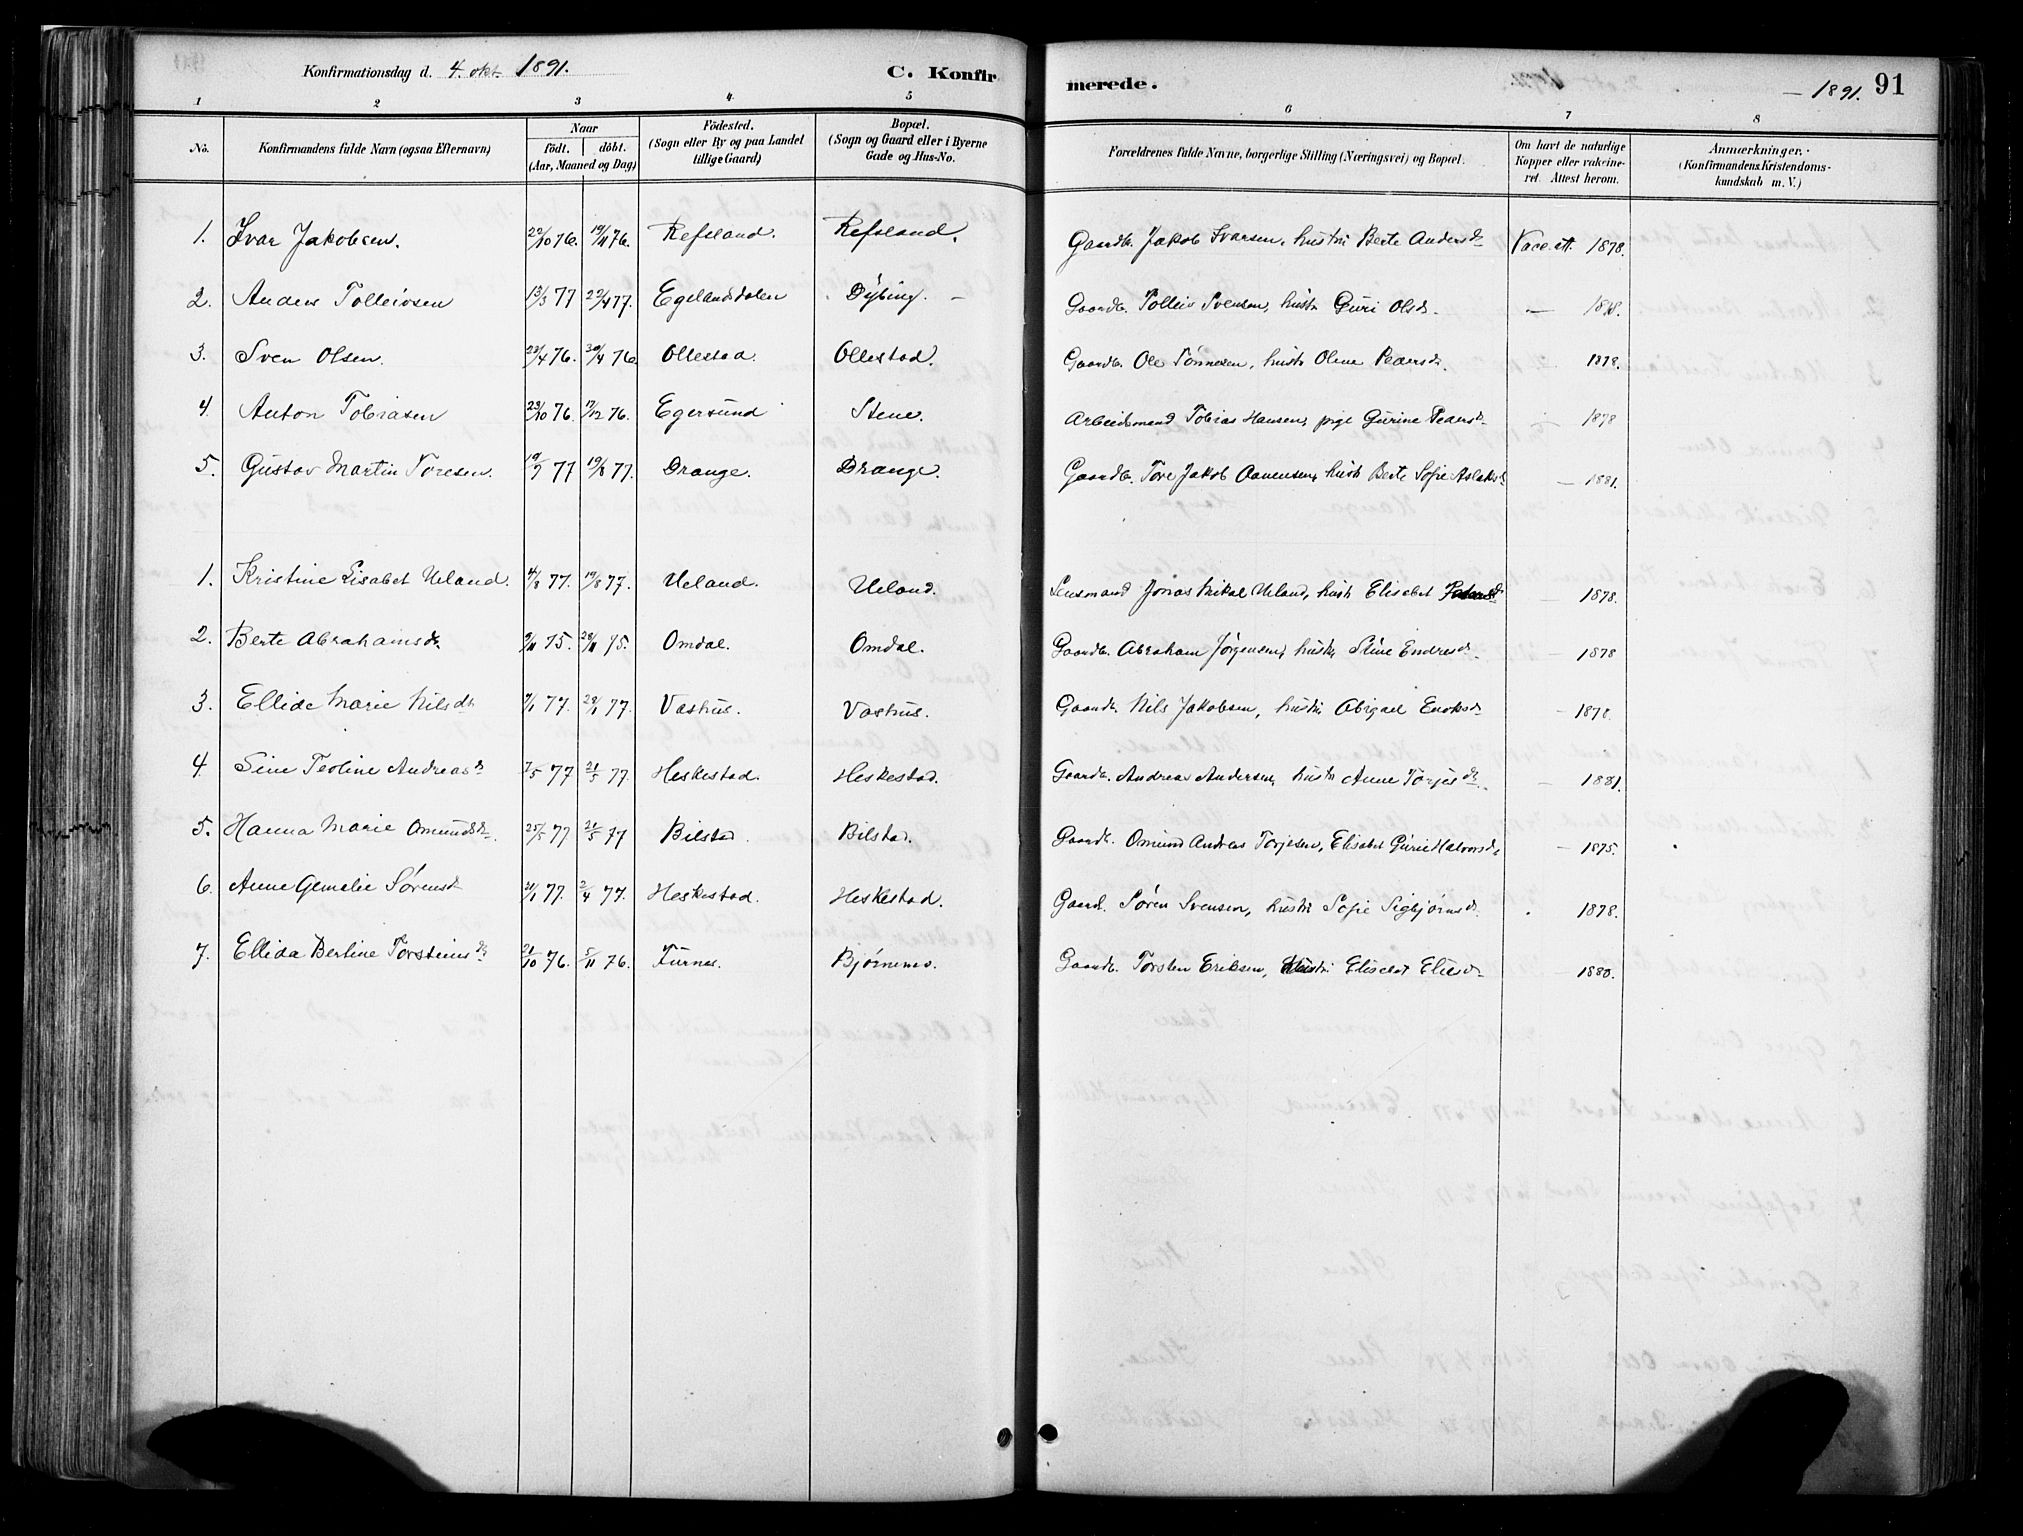 Konfirmationsdag d. 4. okt. 1891.
C. Konfirmerede.
— 1891. 91
1 2 3 4 5 6 7 8
No.
Konfirmandens fulde Navn (ogsaa Efternavn)
Naar
födt. döbt.
(Aar, Maaned og Dag)
Födested.
(Sogn eller By og paa Landet
tillige Gaard)
Bopæl.
(Sogn og Gaard eller i Byerne
Gade og Hus-No.
Forældrenes fulde Navne, borgerlige Stilling (Næringsvei) og Bopæl.
Om havt de naturlige
Kopper eller vakcine-
ret. Attest herom.
Anmærkninger.
(Konfirmandens Kristendoms-
kundskab m. V.)
1. Ivar Jakobsen. 22/10 76. 19/11 76. Refsland. Refsland. Gaardb. Jakob Ivarsen, hustru Berte Andersdr Vacc. att. 1878.
2. Anders Tolleivsen 13/3 77 22/4 77. Egelandsdalen Dybing. — Gaardb. Tolleiv Svensen, hustr Guri Olsdr. — 1878.
3. Sven Olsen. 23/4 76. 30/4 76. Ollestad. Ollestad. Gaardb. Ole Tønnesen, hustr Olene Pedersdr. 1878.
4. Anton Tobiasen 23/10 76. 17/12 76. Egersund Stene. Arbeidsmand Tobias Hansen, pige Gurine Pedersdr — 1878
5. Gustav Martin Toresen. 19/7 77 19/8 77. Drange. Drange. Gaardb. Tore Jakob Aanensen, hustr Berte Sofie Aslaksdr — 1881.
1. Kristine Lisabet Ueland. 4/8 77. 19/8 77. Ueland. Ueland. Lensmand Jonas Mikal Ueland, hustr Elisabet — 1878.
2. Berte Abrahamsdr. 9/11 75. 28/11 75. Omdal. Omdal. Gaardb. Abraham Jørgensen, hustr Stine Endresdr. — 1878
3. Ellide Marie Nilsdr 9/1 77. 29/1 77. Vashus. Vashus. Gaardb. Nils Jakobsen, hustru Abigael Enoksdr — 1878.
4. Sine Teoline Andreasdr 7/5 77 21/5 77. Heskestad. Heskestad. Gaardb. Andreas Andersen, hustr Anne Torjesdr. — 1881.
5. Hanna Marie Omundsdr. 25/5 77 21/5 77 Bilstad. Bilstad. Gaardb. Omund Andreas Torjesen, Elisabet Gurie Halvorsdr — 1875.
6. Anne Gemalie Sørensdr 21/1 77. 2/4 77. Heskestad. Heskestad. Gaard. Søren Svensen, hustr Sofie Sigbjørnsdr. 1878.
7. Ellida Bertine Torsteinsdr 21/10 76. 5/11 76. Furnes. Bjørnemo. Gaardb. Torsten Eriksen, hustr Elisabet Eliesdr — 1880.